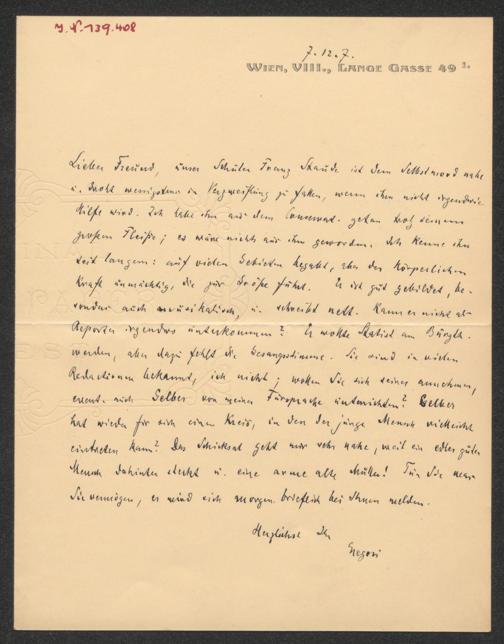 J.N. 139.408
7.12.7.
WIEN, VIII., LANGE GASSE 49
Lieber Freund, unser Schüler Franz ist dem Selbstmord nahe
u. droht wenigstens in Verzweiflung zu fallen, wenn ihm nicht irgendwie
Hilfe wird. Ich habe ihn aus dem Conservat. getan trotz seinem
großem Fleiße; es wäre nichts aus ihm geworden. Ich kenne ihn
seit langem: auf vielen Gebieten begabt, aber der körperlichen
Kraft unmächtig, die zur Größe führt. Er ist gut gebildet, be-
sonders auch musikalisch, u. schreibt nett. Kann er nicht als
Reporter irgendwo unterkommen? Er wollte Statist am Burgth.
werden, aber dazu fehlt die Gesangsstimme. Sie sind in vielen
Redactionen bekannt, ich nicht; wollen Sie sich seiner annehmen,
event. auch Selber von meiner Fürsprache unterrichten? Selber
hat wieder für sich einen Kreis, in den der junge Mensch vielleicht
eintreten kann? Das Schicksal geht mir sehr nahe, weil ein edler guter
Mensch dahinter steckt u. eine arme alte Mutter! Tun Sie was
Sie vermögen, er wird sich morgen brieflich bei Ihnen melden.
Herzlichst Ihr
Gregori